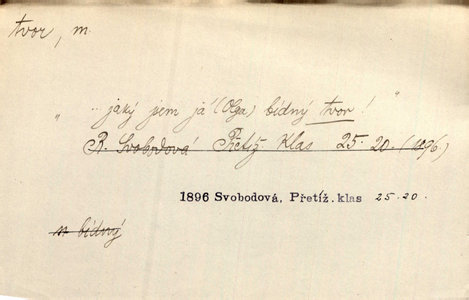 tvor, m.
„ .. jaký jsem já (Olga) bídný tvor! "
R. Svobodová Přetíž. Klas 25. 20. (1896.)
1896 Svobodová, Přetíž. klas 25.20.
n bídný